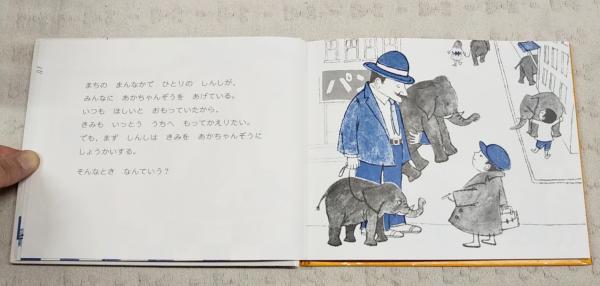 まちの　まんなかで　ひとりの　しんしが、
みんなに　あかちゃんぞうを　あげている。
いつも　ほしいと　おもっていたから、
きみも　いっとう　うちへ　もってかえりたい。
でも、まず　しんしは　きみを　あかちゃんぞうに
しょうかいする。
そんなとき　なんていう？
パン